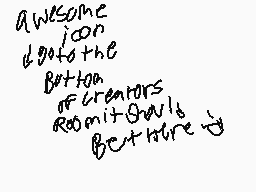 awesome
icon
↓ goto the
Bottom
of creators
Room it should
Be there